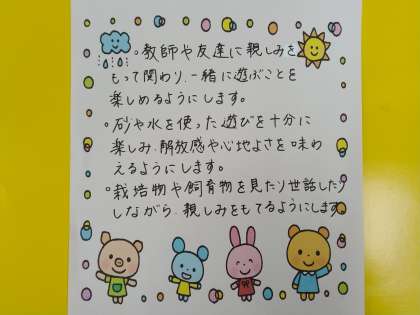 。教師や友達に親しみを
もって関わり、一緒に遊ぶことを
楽しめるようにします。
。砂や水を使った遊びを十分に
楽しみ、解放感や心地よさを味わ
えるようにします。
。栽培物や飼育物を見たり世話したり
しながら、親しみをもてるようにします。